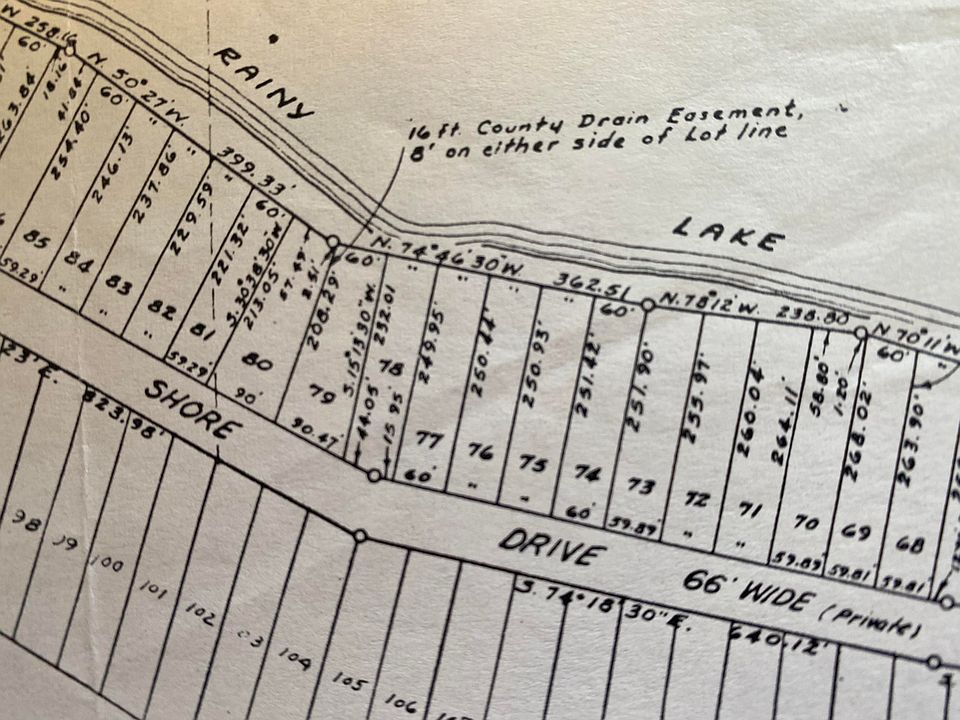 W 258.16
60'
N. 50° 27' W.
399.33'
60'
RAINY
16 ft. County Drain Easement,
8' on either side of Lot line
LAKE
N. 74° 46' 30" W.
362.51
60'
N. 78° 12' W.
238.80
N 70° 11' W
60'
263.84'
18.16
41.84
60'
254.40'
246.13'
237.86'
229.59'
221.32'
S. 30° 38' 30" W
213.05'
57.49
2.51'
208.29'
60'
S. 15° 13' 30" W.
232.01
249.95'
250.44'
250.93'
251.42'
251.90'
255.97'
260.04'
264.11'
58.80'
1.20'
268.02'
263.90'
85
84
83
82
81
80
79
78
77
76
75
74
73
72
71
70
69
68
59.29'
59.29'
90'
90.47'
44.05'
15.95'
60'
60'
59.89'
59.89'
59.81'
59.81'
SHORE
DRIVE
66' WIDE (Private)
23' E.
823.98'
S. 74° 18' 30" E.
640.12'
98
100
101
102
104
105
106